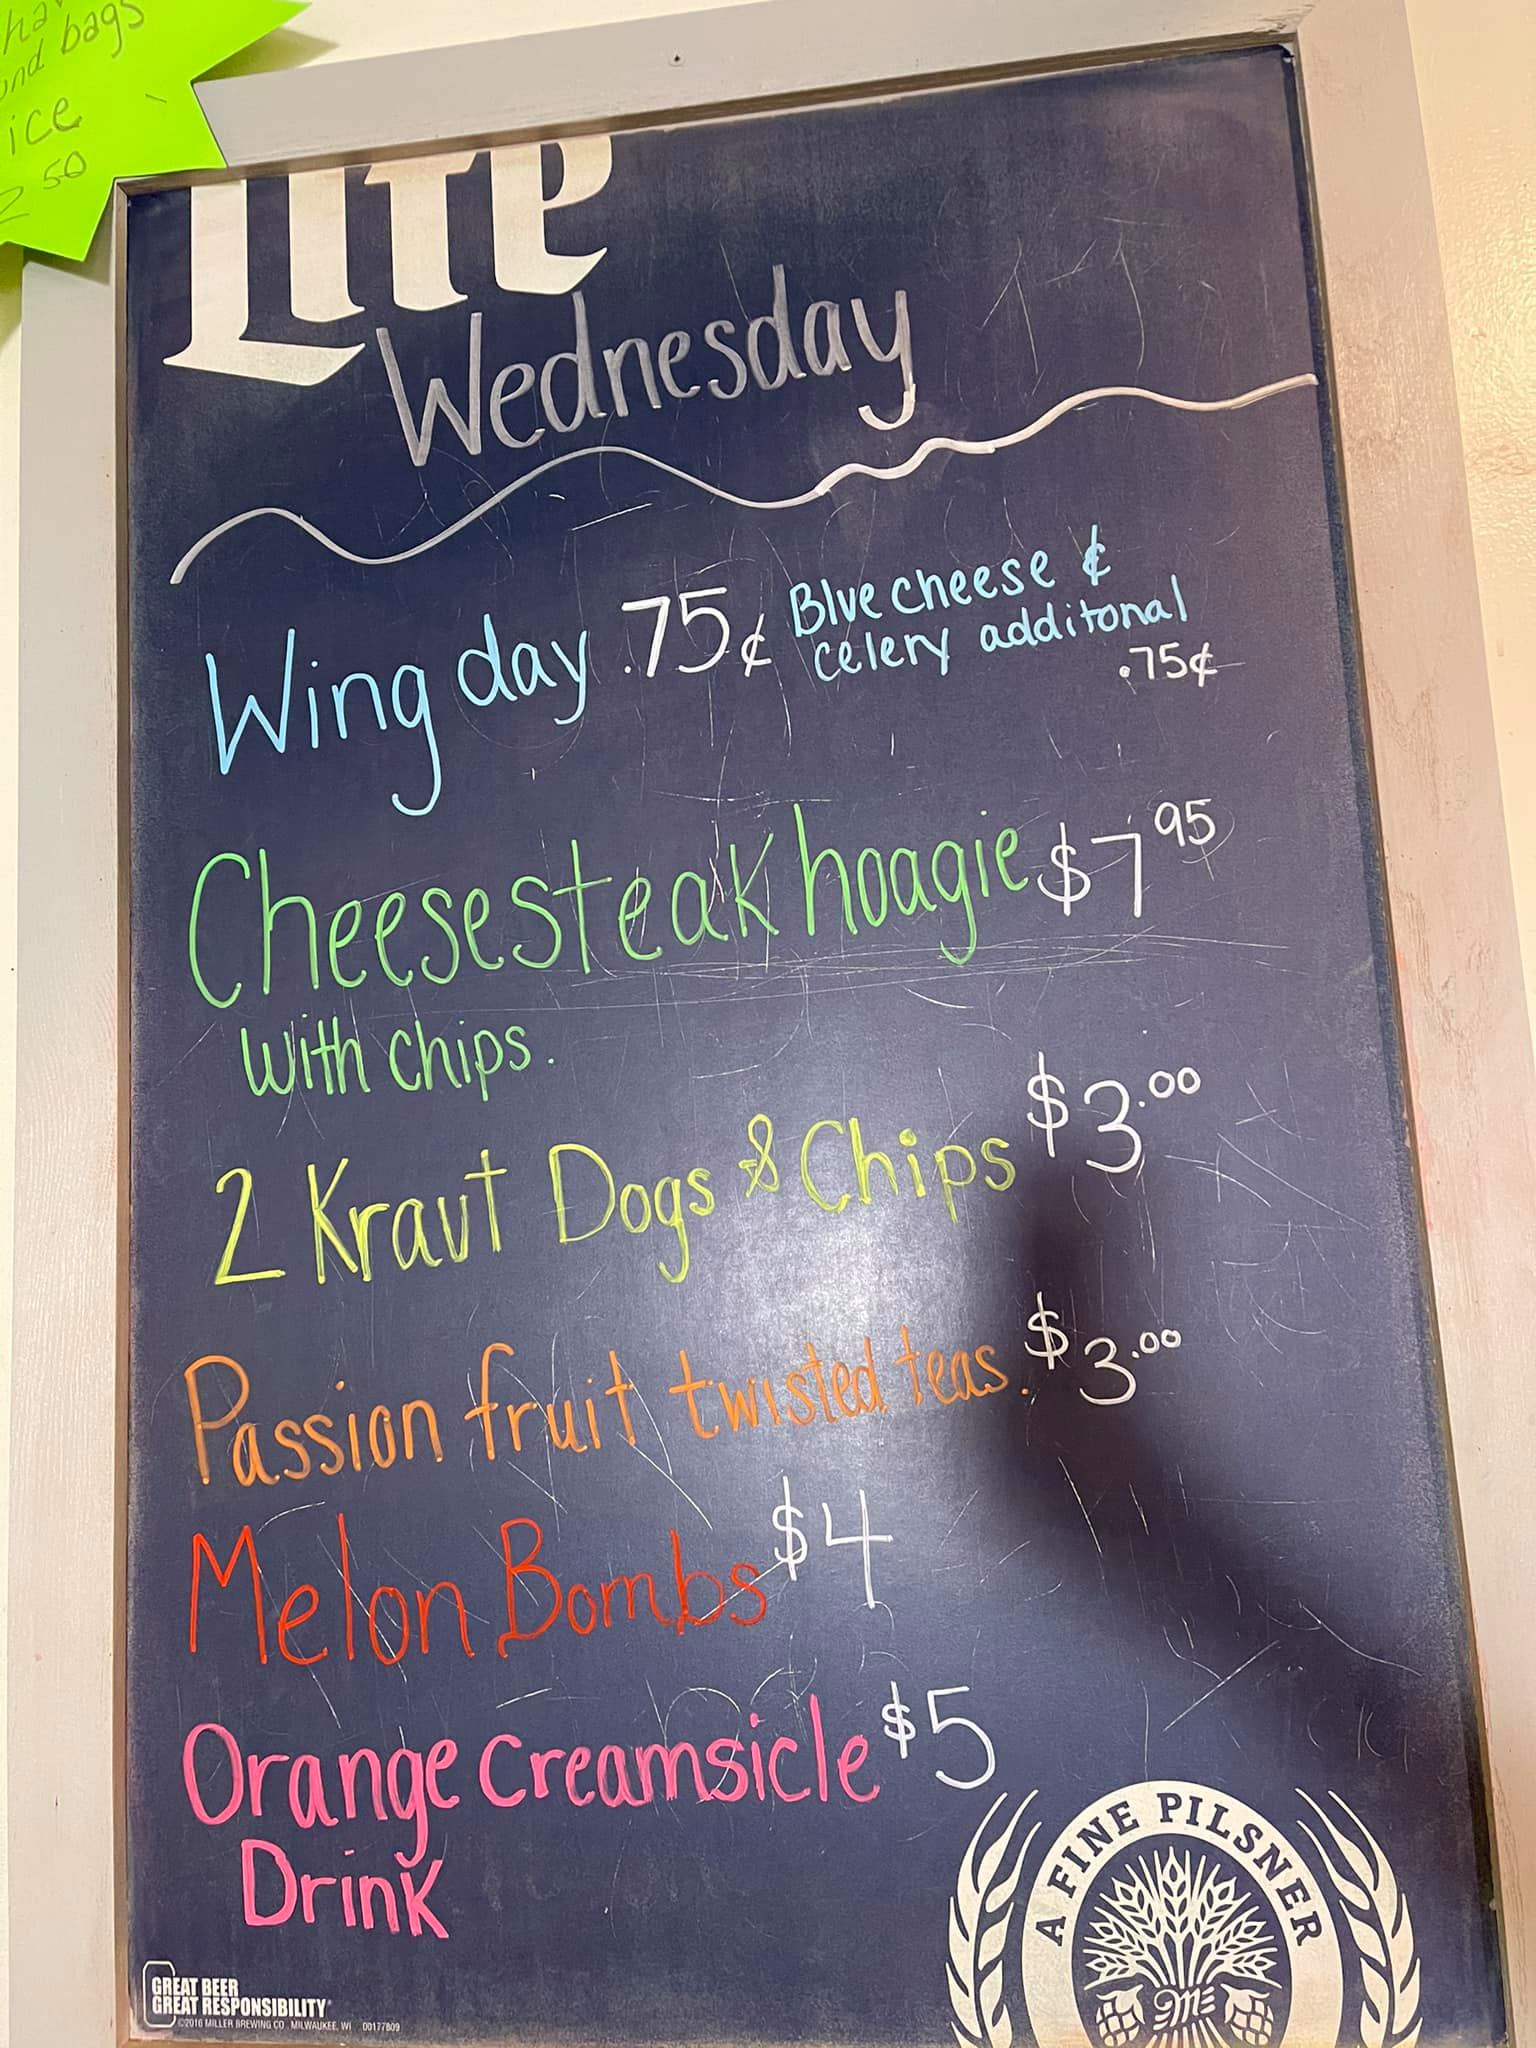 ha
and bags
ice
2 50
Lite
Wednesday
Wing day .75¢ Blue cheese &
celery additonal
.75¢
Cheesesteak hoagie $7 95
with chips.
2 Kraut Dogs & Chips $3.00
Passion fruit twisted teas. $3.00
Melon Bombs $4
Orange Creamsicle $5
Drink
A FINE PILSNER
GREAT BEER
GREAT RESPONSIBILITY®
©2016 MILLER BREWING CO. MILWAUKEE, WI 00177809